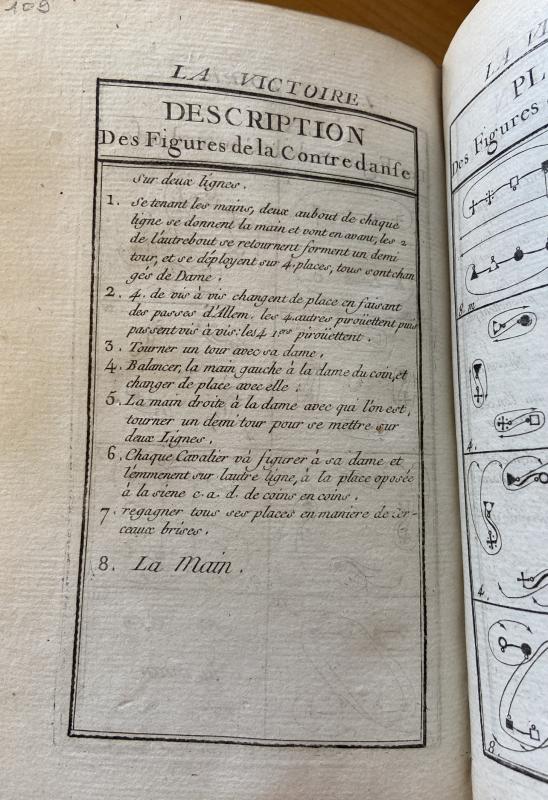 109
LA VICTOIRE
DESCRIPTION
Des Figures de la Contredanse
sur deux lignes.
1. se tenant les mains, deux au bout de chaque
ligne se donnent la main et vont en avant, les 2
de l'autre bout se retournent forment un demi
tour, et se deployent sur 4. places, tous sont chan
gés de Dame.
2. 4. de vis à vis changent de place en faisant
des passes d'Allem. les 4. autres piroüettent puis
passent vis à vis: les 4 1ers piroüettent.
3. Tourner un tour avec sa dame.
4. Balancer, la main gauche à la dame du coin, et
changer de place avec elle.
5. La main droite à la dame avec qui l'on est,
tourner un demi tour pour se mettre sur
deux Lignes.
6. Chaque Cavalier và figurer à sa dame et
l'emmenent sur l'autre ligne, à la place oposée
à la siene c. a. d. de coins en coins.
7. regagner tous ses places en maniere de cer-
ceaux brises.
8. La Main.
LA VI
PL
Des Figures
8. m
4.
4.
8.